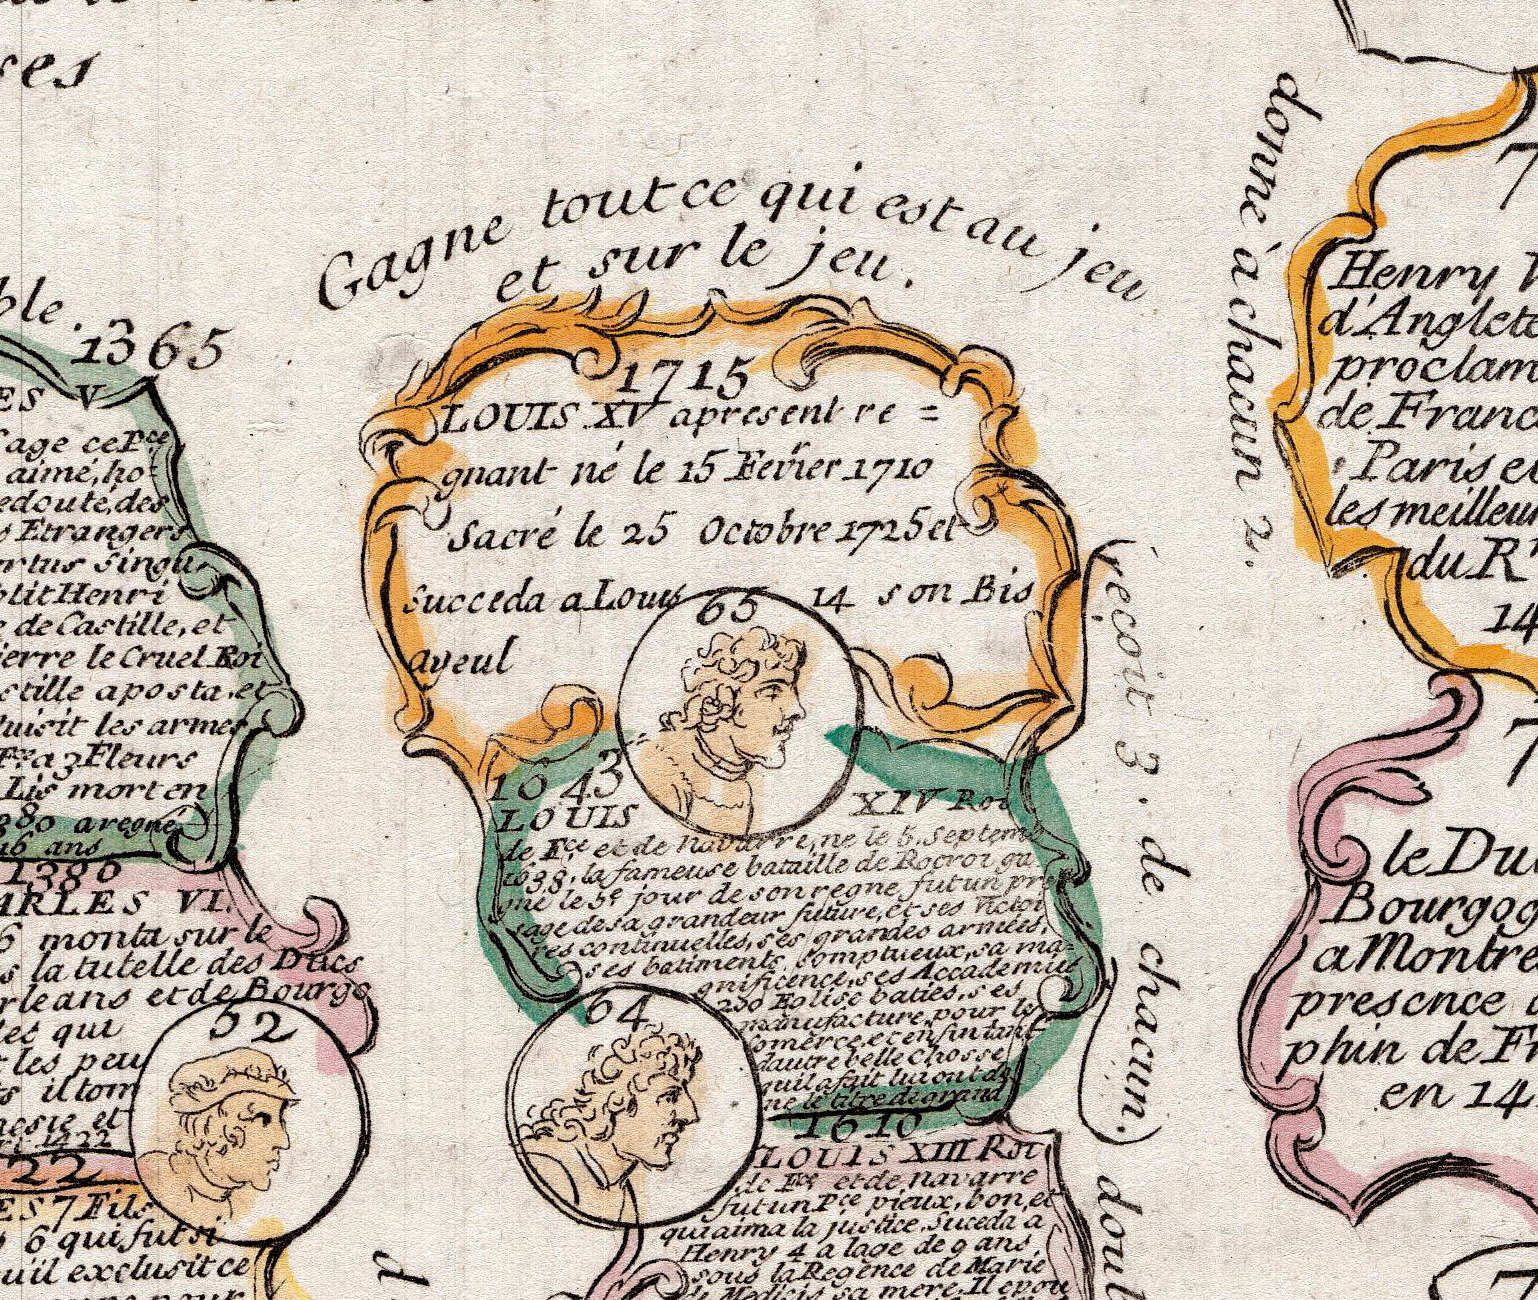 ses
Gagne tout ce qui est au jeu
et sur le jeu.
1715
LOUIS XV apresent re =
gnant né le 15 Fevier 1710
Sacré le 25 Octobre 1725 et
succeda a Louis 14 son Bis
ayeul
65
1643
LOUIS XIV Roi
de Fce et de Navarre, né le 5. Septemb
1638, la fameuse bataille de Rocroi ga
gné le 5e jour de son regne fut un pre
sage de sa grandeur future, et ses victoi
res continuelles, ses grandes armées,
ses batiments somptueux, sa ma=
gnificence, ses Accademies
230 Eglise baties, ses
manufacture pour le
comerce, et en fin tant
dautre belle chosse
quil a fait lui ont do
ne le titre di grand
64
1610
LOUIS XIII Roi
de Fce et de navarre
fut un Pce pieux, bon, et
qui aima la justice, suceda a
Henry 4 a lage de 9 ans
sous la Regence de Marie
de Medicis sa mere. Il epou
reçoit 3. de chacun.
doub
d
ble.
1365
ES V
sage ce Pce
aimé, ho
edouté, des
s Etrangers
ertus Singu
blit Henri
e de Castille, et
ierre le Cruel Roi
stille aposta, et
duisit les armes
Fce a 3 Fleurs
Lis mort en
380 a regné
16 ans
1380
ARLES VI.
6 monta sur le
s la tutelle des Ducs
rleans et de Bourgo
les qui
t les peu
s il tom
nesie et
rt 1422
52
22
ES 7 Fils
6 qui fut si
u'il exclusit ce
donné à chacun 2.
7
Henry V
d'Anglete
proclam
de Franc
Paris e
les meilleu
du R
14
7
le Du
Bourgog
a Montre
presence
phin de F
en 14
7